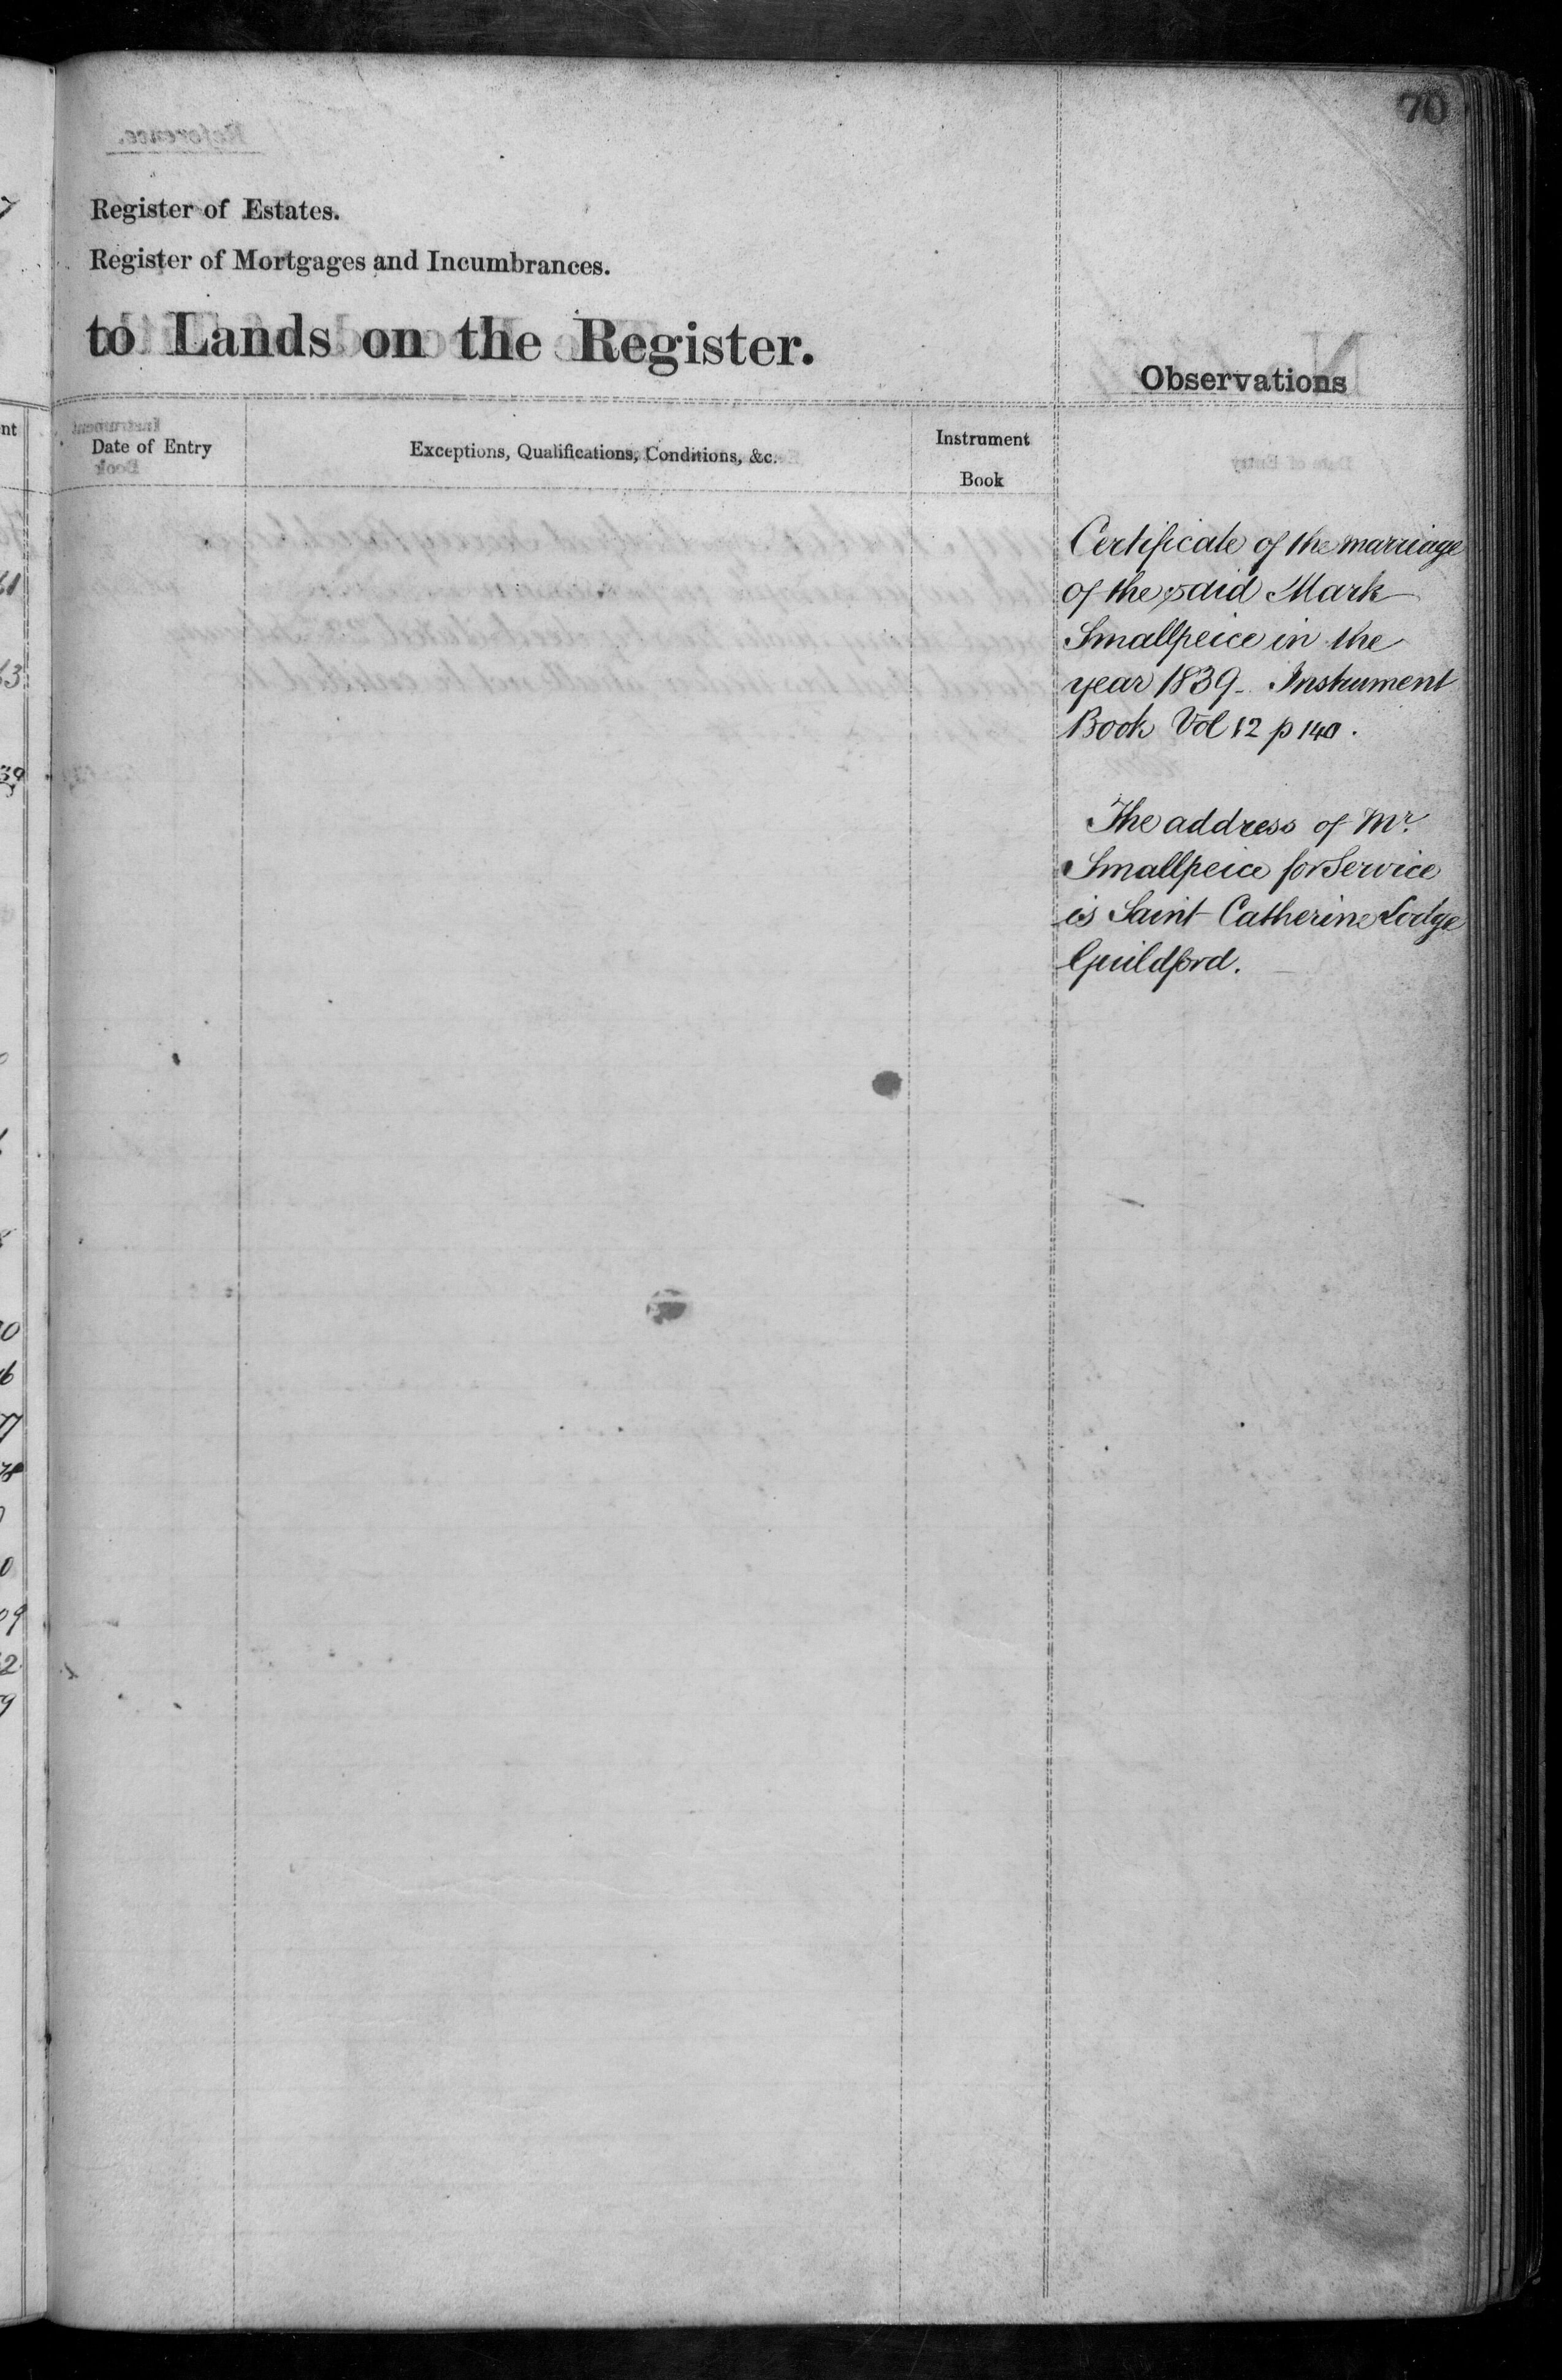 70
Register of Estates.
Register of Mortgages and Incumbrances.
to Lands on the Register.
Observations
Date of Entry
Exceptions, Qualifications, Conditions, &c.
Instrument
Book
Certificate of the marriage
of the said Mark
Smallpeice in the
year 1839. Instrument
Book Vol 12 p 140.
The address of Mr.
Smallpeice for Service
is Saint Catherine Lodge
Guildford.